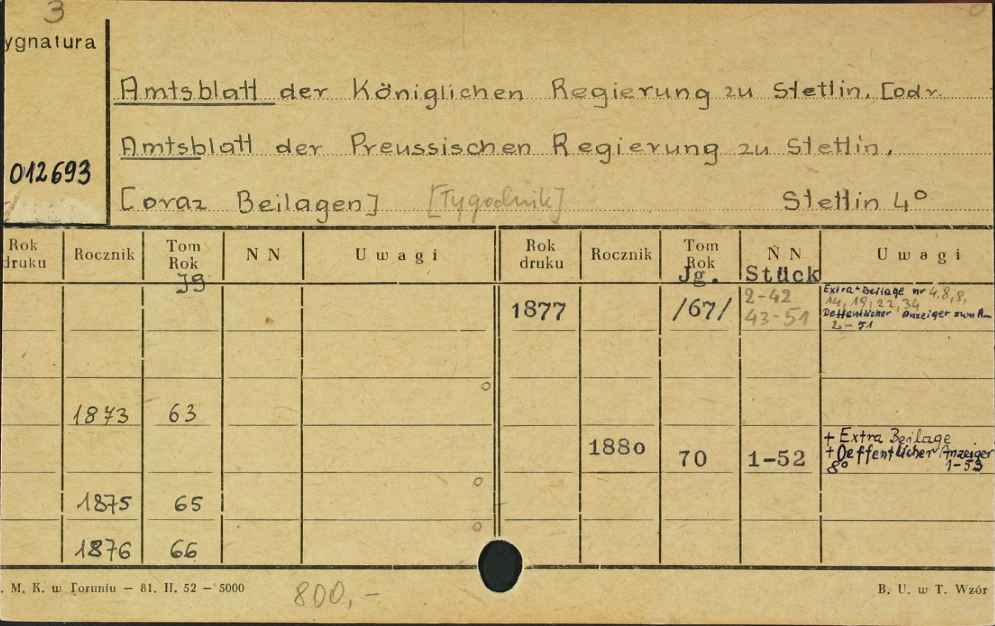 3
ygnatura
012693
Amtsblatt der Königlichen Regierung zu Stettin. [odr.
Amtsblatt der Preussischen Regierung zu Stettin.
[oraz Beilagen] [Tygodnik] Stettin 4°
Rok druku Rocznik Tom Rok N N Uwagi Rok druku Rocznik Tom Rok N N Uwagi
Jg Jg. Stück
1877 /67/ 2-42 43-51 Extra-Beilage nr 4.8,8, 14, 19, 22, 34 Oeffentlicher Anzeiger zum 2-51
1873 63
1880 70 1-52 + Extra Beilage + Oeffentlicher Anzeiger 8° 1-53
1875 65
1876 66
. M. K. w Toruniu — 81. II. 52 — 5000
800,-
B. U. w T. Wzór